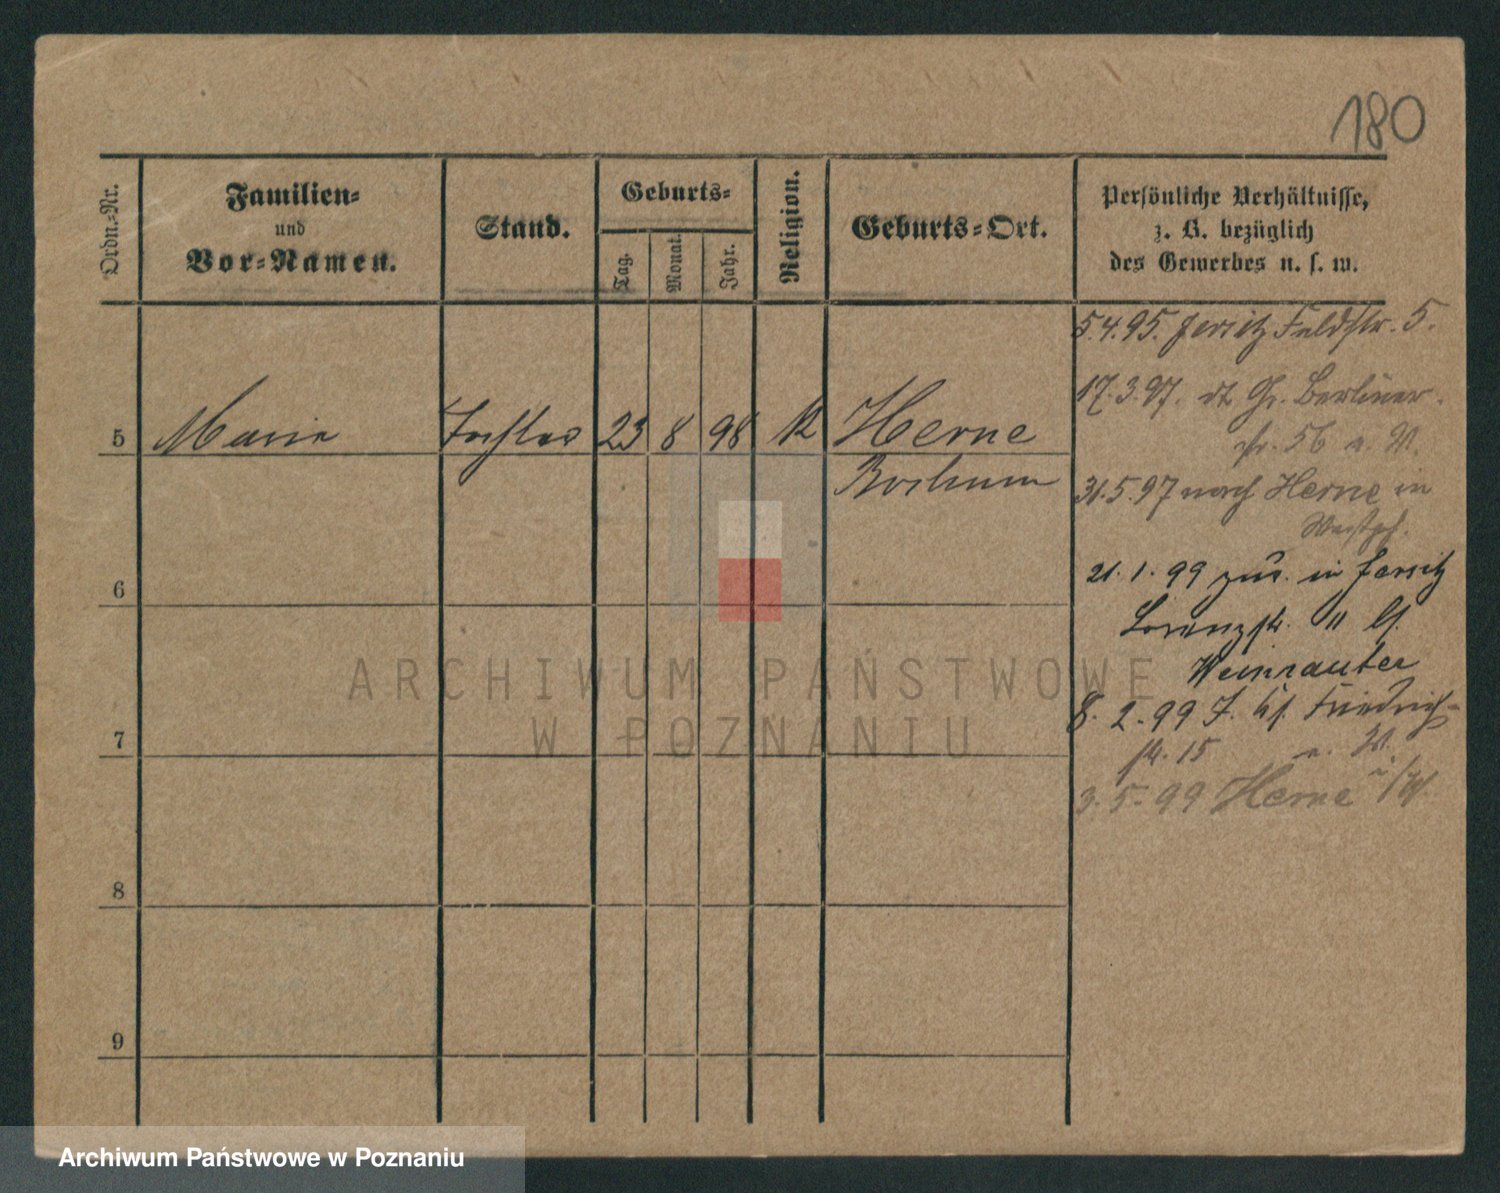 180
Ordn.-Nr.
Familien-
und
Vor-Namen.
Stand.
Geburts-
Tag.
Monat.
Jahr.
Religion.
Geburts-Ort.
Persönliche Verhältnisse,
z. B. bezüglich
des Gewerbes u. s. w.
5.4.95. Jersitz Feldstr. 5.
17.3.97. Gr. Berliner-
str. 56
5 Marie Tochter 23 8 98 k Herne
Bochum
31.5.97 nach Herne in
Westph.
21.1.99 zur. in Jersitz
6
Lorenzstr.
Weinrauter
8.2.99 J. Friedrich-
str. 15
7
3.5.99 Herne i/W.
8
9
ARCHIWUM PAŃSTWOWE
W POZNANIU
Archiwum Państwowe w Poznaniu